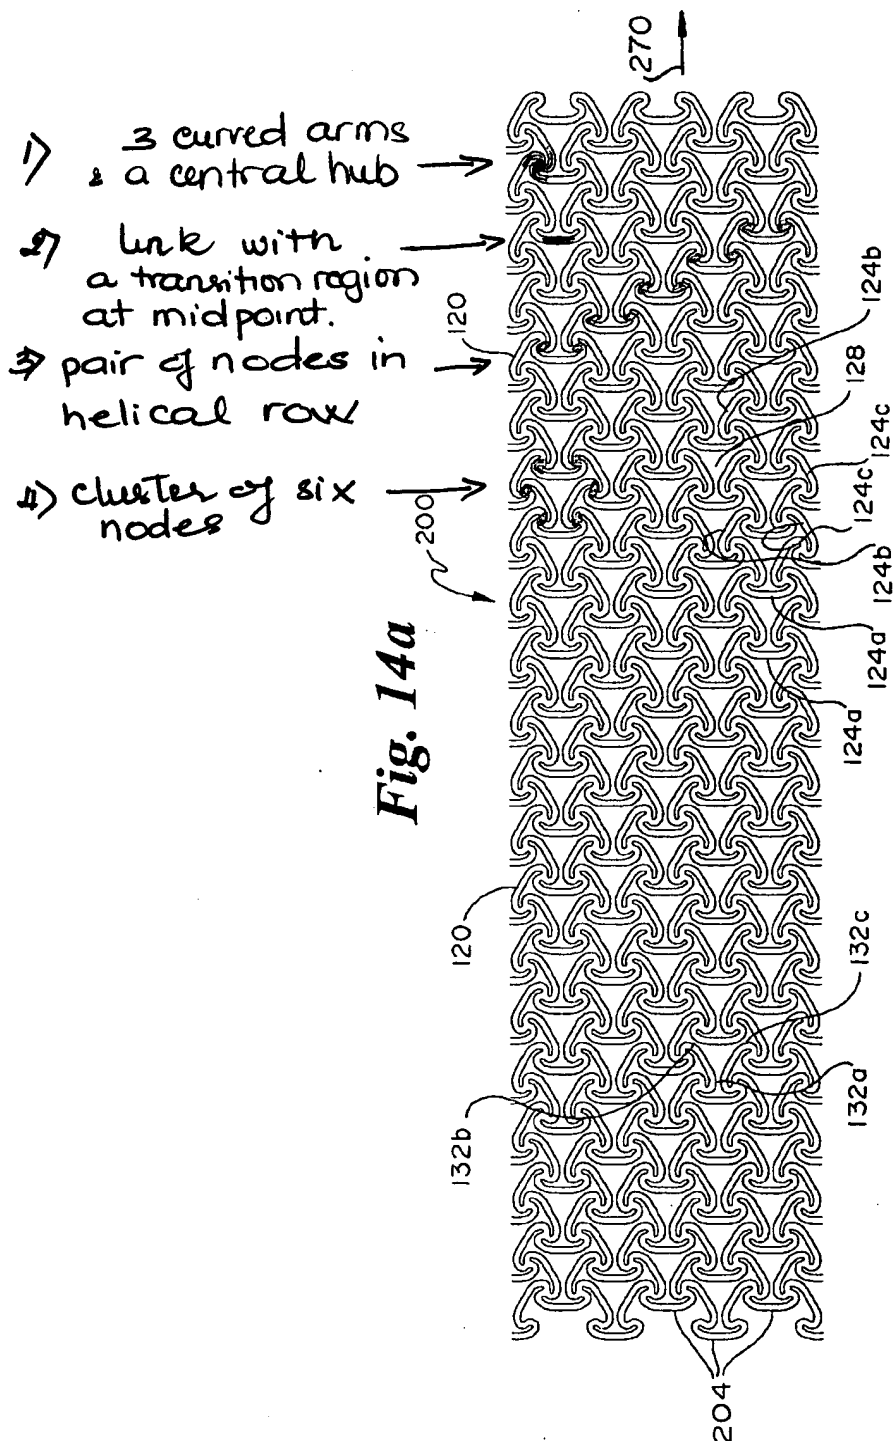 1) 3 curved arms
& a central hub
2) link with
a transition region
at midpoint.
3) pair of nodes in
helical row
4) cluster of six
nodes
Fig. 14a
200
270
120
124b
128
124c
124c
124b
124a
124a
120
132c
132a
132b
204